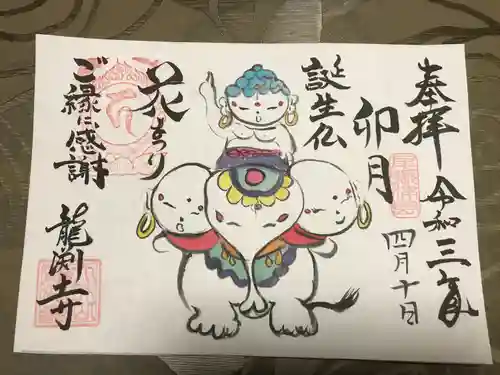 奉拝
令和三年
四月十日
卯月
誕生仏
花まつり
ご縁に感謝
龍渕寺